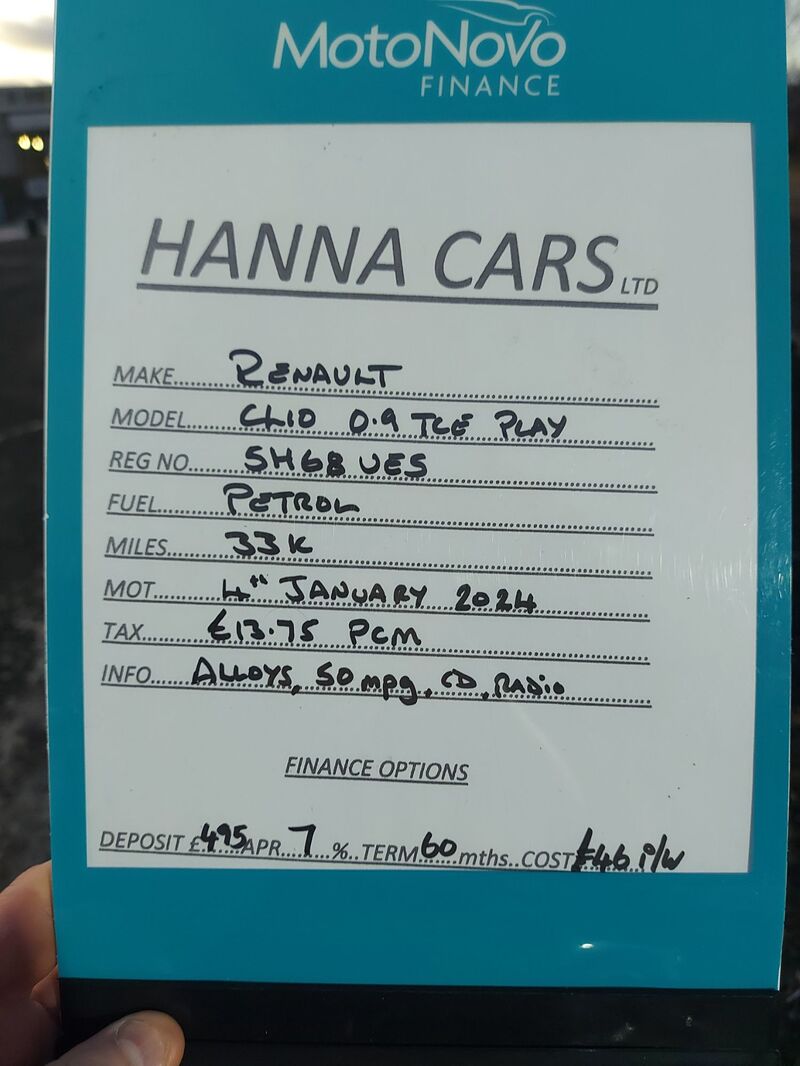 MOTONOVO
FINANCE
HANNA CARS LTD
MAKE...... RENAULT
MODEL...... CLIO 0.9 TCE PLAY
REG NO..... SH68 UES
FUEL...... PETROL
MILES...... 33K
MOT...... 4TH JANUARY 2024
TAX...... £13.75 PCM
INFO..... ALLOYS, 50 mpg, CD, RADIO
FINANCE OPTIONS
DEPOSIT £.495 APR...7...%..TERM 60 mths..COST £46 P/W